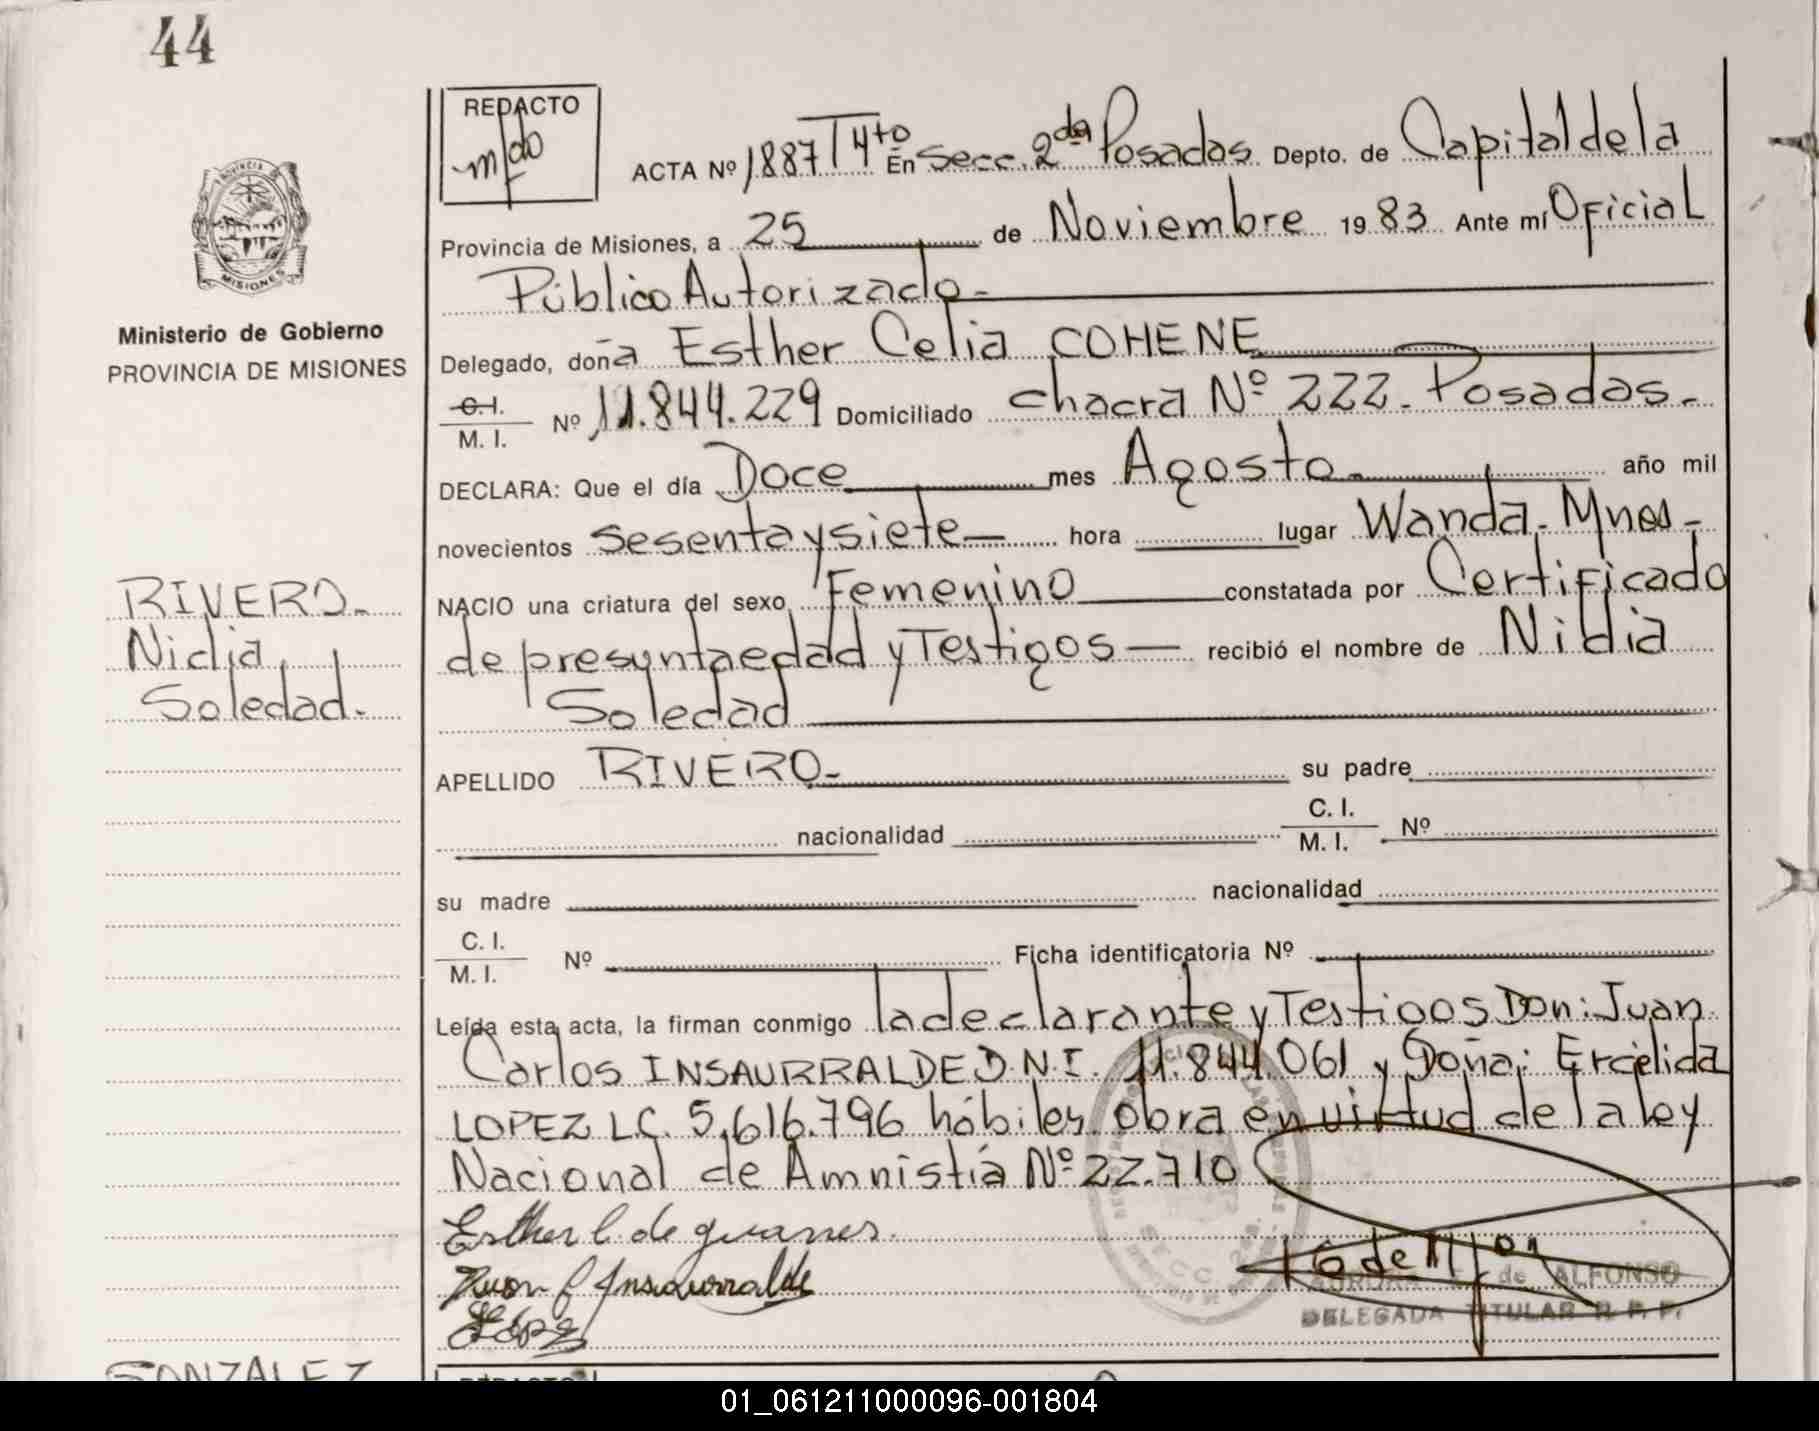 44
REDACTO
ACTA Nº 1887 T 4to En Secc. 2da Posadas Depto. de Capital de la
Provincia de Misiones, a 25 de Noviembre 19 83 Ante mí Oficial
Público Autorizado-
PROVINCIA
MISIONES
Ministerio de Gobierno
PROVINCIA DE MISIONES
Delegado, doña Esther Celia COHENE
C.I. M. I. Nº 11.844.229 Domiciliado chacra Nº 222. Posadas.-
DECLARA: Que el día Doce mes Agosto año mil
novecientos sesenta y siete hora lugar Wanda. Mnes-
RIVERO.-
Nidia
Soledad.-
NACIO una criatura del sexo Femenino constatada por Certificado
de presunta edad y Testigos recibió el nombre de Nidia
Soledad
APELLIDO RIVERO- su padre
nacionalidad C. I. M. I. Nº
su madre nacionalidad
C. I. M. I. Nº Ficha identificatoria Nº
Leída esta acta, la firman conmigo la declarante y Testigos Don: Juan
Carlos INSAURRALDE D.N.I. 11.844.061 y Doña: Ercelida
LOPEZ LC. 5.616.796 hábiles. obra en virtud de la ley
Nacional de Amnistía Nº 22.710
Esther C de
Juan C Insaurralde
López
de ALFONSO
DELEGADA TITULAR R. P. P.
GONZALEZ
REDACTO
01_061211000096-001804